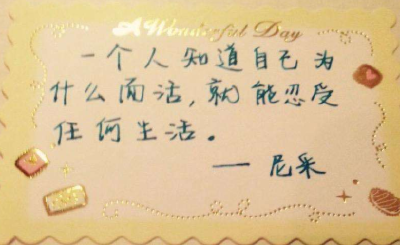 A Wonderful Day
一个人知道自己为
什么而活,就能忍受
任何生活。
—— 尼采